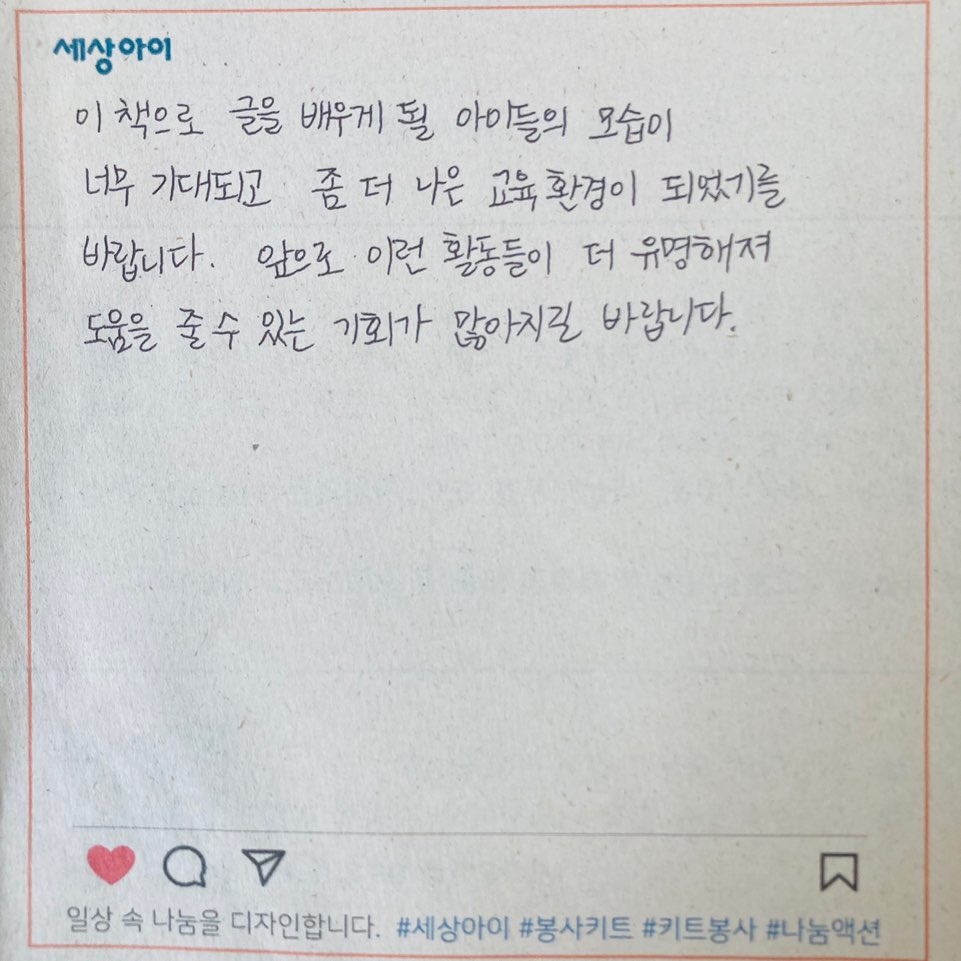 세상아이
이 책으로 글을 배우게 될 아이들의 모습이
너무 기대되고 좀 더 나은 교육환경이 되었기를
바랍니다. 앞으로 이런 활동들이 더 유명해져
도움을 줄 수 있는 기회가 많아지길 바랍니다.
일상 속 나눔을 디자인합니다. #세상아이 #봉사키트 #키트봉사 #나눔액션